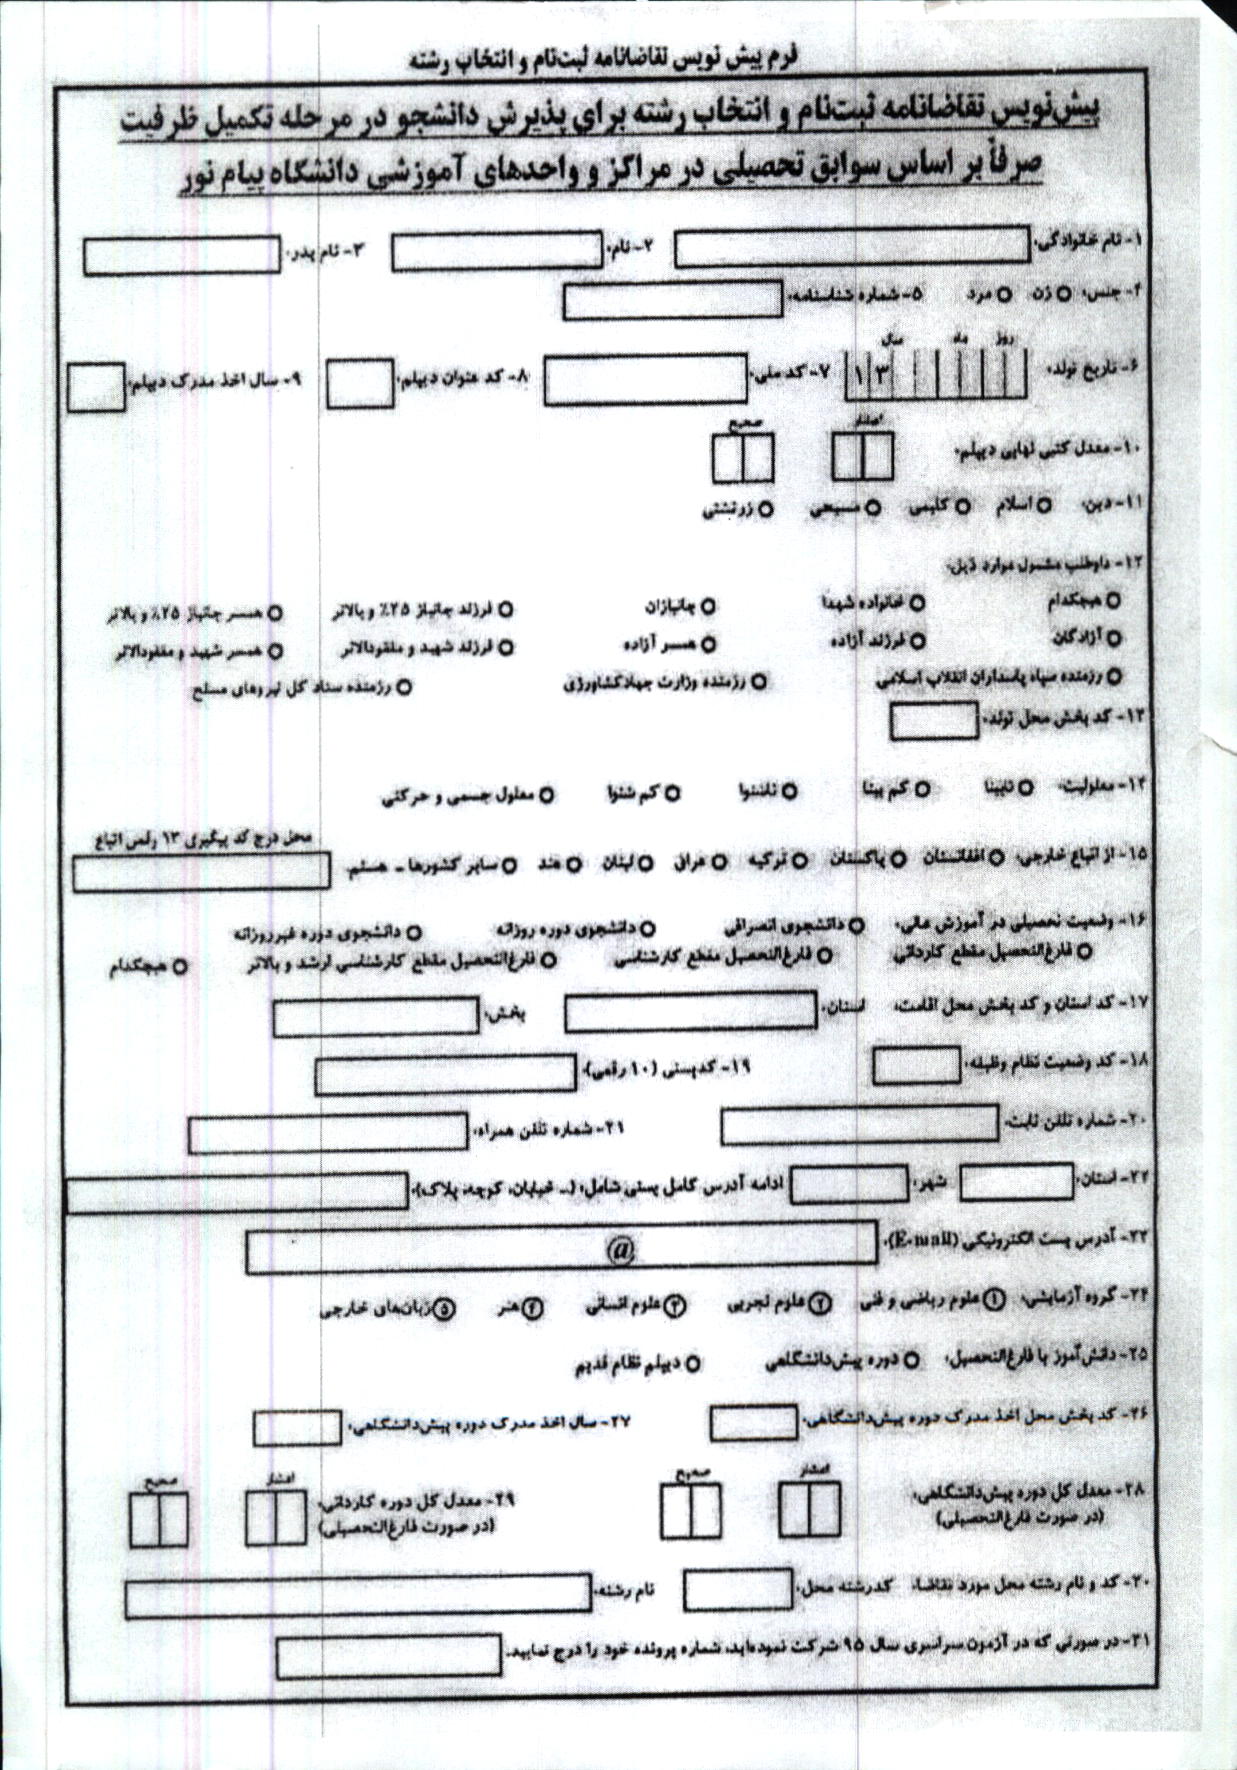 فرم پیش نویس تقاضانامه ثبت‌نام و انتخاب رشته
پیش‌نویس تقاضانامه ثبت‌نام و انتخاب رشته برای پذیرش دانشجو در مرحله تکمیل ظرفیت
صرفاً بر اساس سوابق تحصیلی در مراکز و واحدهای آموزشی دانشگاه پیام نور
۱- نام خانوادگی: ۲- نام: ۳- نام پدر:
۴- جنس: زن مرد ۵- شماره شناسنامه:
روز ماه سال
۶- تاریخ تولد: ۱۳ ۷- کد ملی: ۸- کد عنوان دیپلم: ۹- سال اخذ مدرک دیپلم:
اعشار صحیح
۱۰- معدل کتبی نهایی دیپلم:
۱۱- دین: اسلام کلیمی مسیحی زرتشتی
۱۲- داوطلب مشمول موارد ذیل:
هیچکدام خانواده شهدا جانبازان فرزند جانباز ۲۵٪ و بالاتر همسر جانباز ۲۵٪ و بالاتر
آزادگان فرزند آزاده همسر آزاده فرزند شهید و مفقودالاثر همسر شهید و مفقودالاثر
رزمنده سپاه پاسداران انقلاب اسلامی رزمنده وزارت جهادکشاورزی رزمنده ستاد کل نیروهای مسلح
۱۳- کد بخش محل تولد:
۱۴- معلولیت: نابینا کم بینا ناشنوا کم شنوا معلول جسمی و حرکتی
محل درج کد پیگیری ۱۳ رقمی اتباع
۱۵- از اتباع خارجی: افغانستان پاکستان ترکیه عراق لبنان هند سایر کشورها - هستم.
۱۶- وضعیت تحصیلی در آموزش عالی: دانشجوی انصرافی دانشجوی دوره روزانه دانشجوی دوره غیرروزانه
فارغ‌التحصیل مقطع کاردانی فارغ‌التحصیل مقطع کارشناسی فارغ‌التحصیل مقطع کارشناسی ارشد و بالاتر هیچکدام
۱۷- کد استان و کد بخش محل اقامت: استان: بخش:
۱۸- کد وضعیت نظام وظیفه: ۱۹- کدپستی (۱۰ رقمی):
۲۰- شماره تلفن ثابت: ۲۱- شماره تلفن همراه:
۲۲- استان: شهر: ادامه آدرس کامل پستی شامل: (... خیابان، کوچه، پلاک):
۲۳- آدرس پست الکترونیکی (E-mail): @
۲۴- گروه آزمایشی: ۱ علوم ریاضی و فنی ۲ علوم تجربی ۳ علوم انسانی ۴ هنر ۵ زبان‌های خارجی
۲۵- دانش‌آموز یا فارغ‌التحصیل: دوره پیش‌دانشگاهی دیپلم نظام قدیم
۲۶- کد بخش محل اخذ مدرک دوره پیش‌دانشگاهی: ۲۷- سال اخذ مدرک دوره پیش‌دانشگاهی:
اعشار صحیح اعشار صحیح
۲۸- معدل کل دوره پیش‌دانشگاهی: ۲۹- معدل کل دوره کاردانی:
(در صورت فارغ‌التحصیلی) (در صورت فارغ‌التحصیلی)
۳۰- کد و نام رشته محل مورد تقاضا: کدرشته محل: نام رشته:
۳۱- در صورتی که در آزمون سراسری سال ۹۵ شرکت نموده‌اید، شماره پرونده خود را درج نمایید.